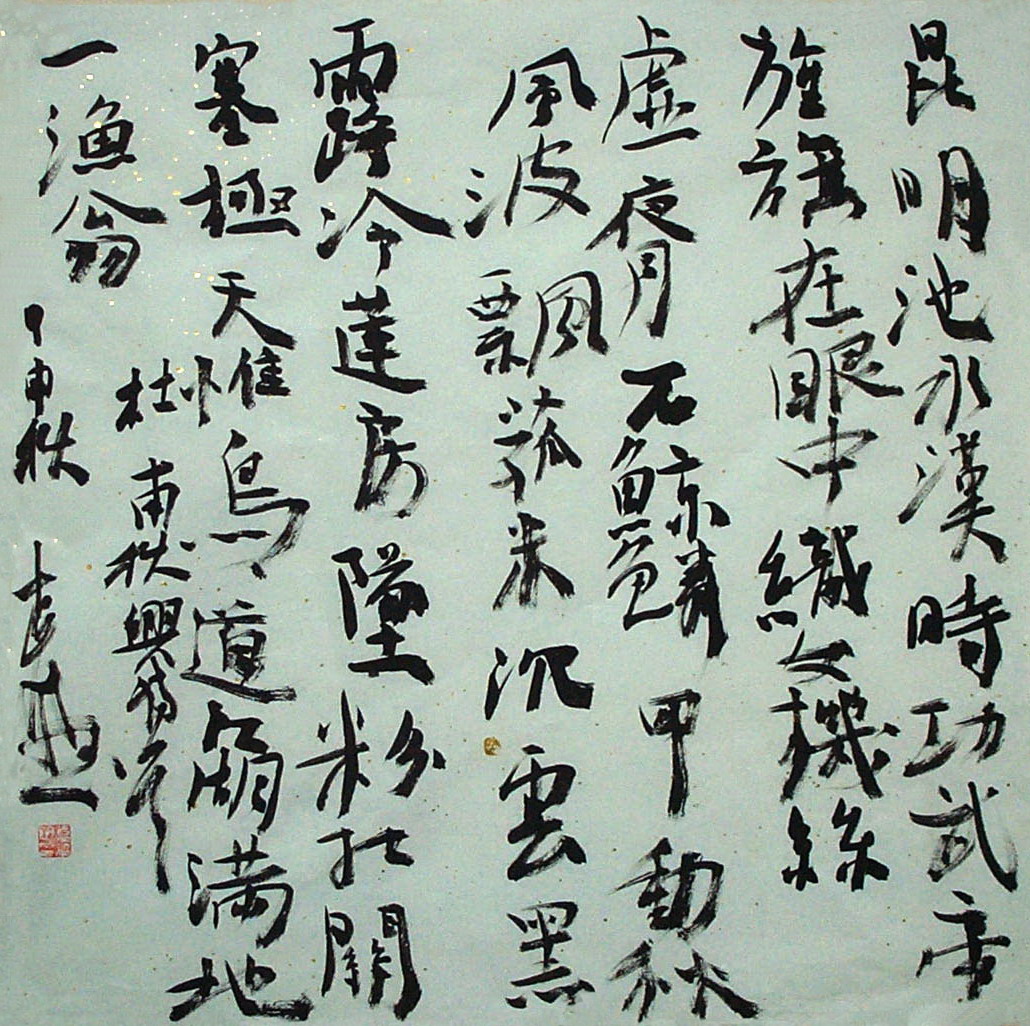 昆明池水漢時功武帝
旌旗在眼中織女機絲
虛夜月石鯨鱗甲動秋
風波飄菰米沉雲黑
露冷蓮房墜粉紅關
塞極天惟鳥道江湖滿地
一漁翁
杜甫秋興詩
甲申秋